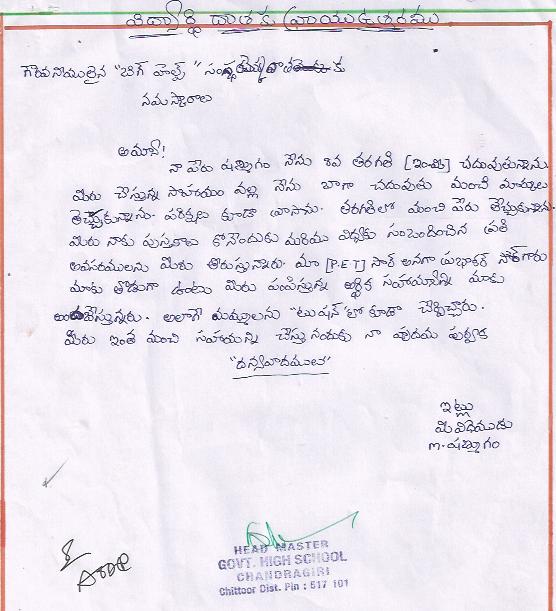 విద్యార్థి దాతకు వ్రాయు ఉత్తరము
గౌరవనీయులైన "బిగ్ హెల్ప్" సంస్థ యొక్క దాతకు
నమస్కారాలు
అమ్మా!
నా పేరు షణ్ముగం నేను 8వ తరగతి [ఇంగ్లీషు] చదువుతున్నాను.
మీరు చేస్తున్న సాహయం వల్ల నేను బాగా చదువుతు మంచి మార్కులు
తెచ్చుకున్నాను. పరీక్షలు కూడా వ్రాసాను. తరగతిలో మంచి పేరు తెచ్చుకున్నాను.
మీరు నాకు పుస్తకాలు కొనేందుకు మరియు విద్యకు సంబందించిన ప్రతి
అవసరములను మీరు తీరుస్తున్నారు. మా [P.E.T] సార్ అనగా ప్రభాకర్ సార్ గారు
మాకు తోడుగా ఉంటు మీరు పంపిస్తున్న ఆర్థిక సహాయాన్ని మాకు
అందచేస్తున్నారు. అలాగే మమ్ములను "టుషన్" లో కూడా చేర్పిచ్చారు.
మీరు ఇంత మంచి సహాయాన్ని చేస్తునందుకు నా హృదయ పూర్వక
"దన్యవాదములు"
ఇట్లు
మీ విదేయుడు
m. షణ్ముగం
HEAD MASTER
GOVT. HIGH SCHOOL
CHANDRAGIRI
Chittoor Dist. Pin : 517 101